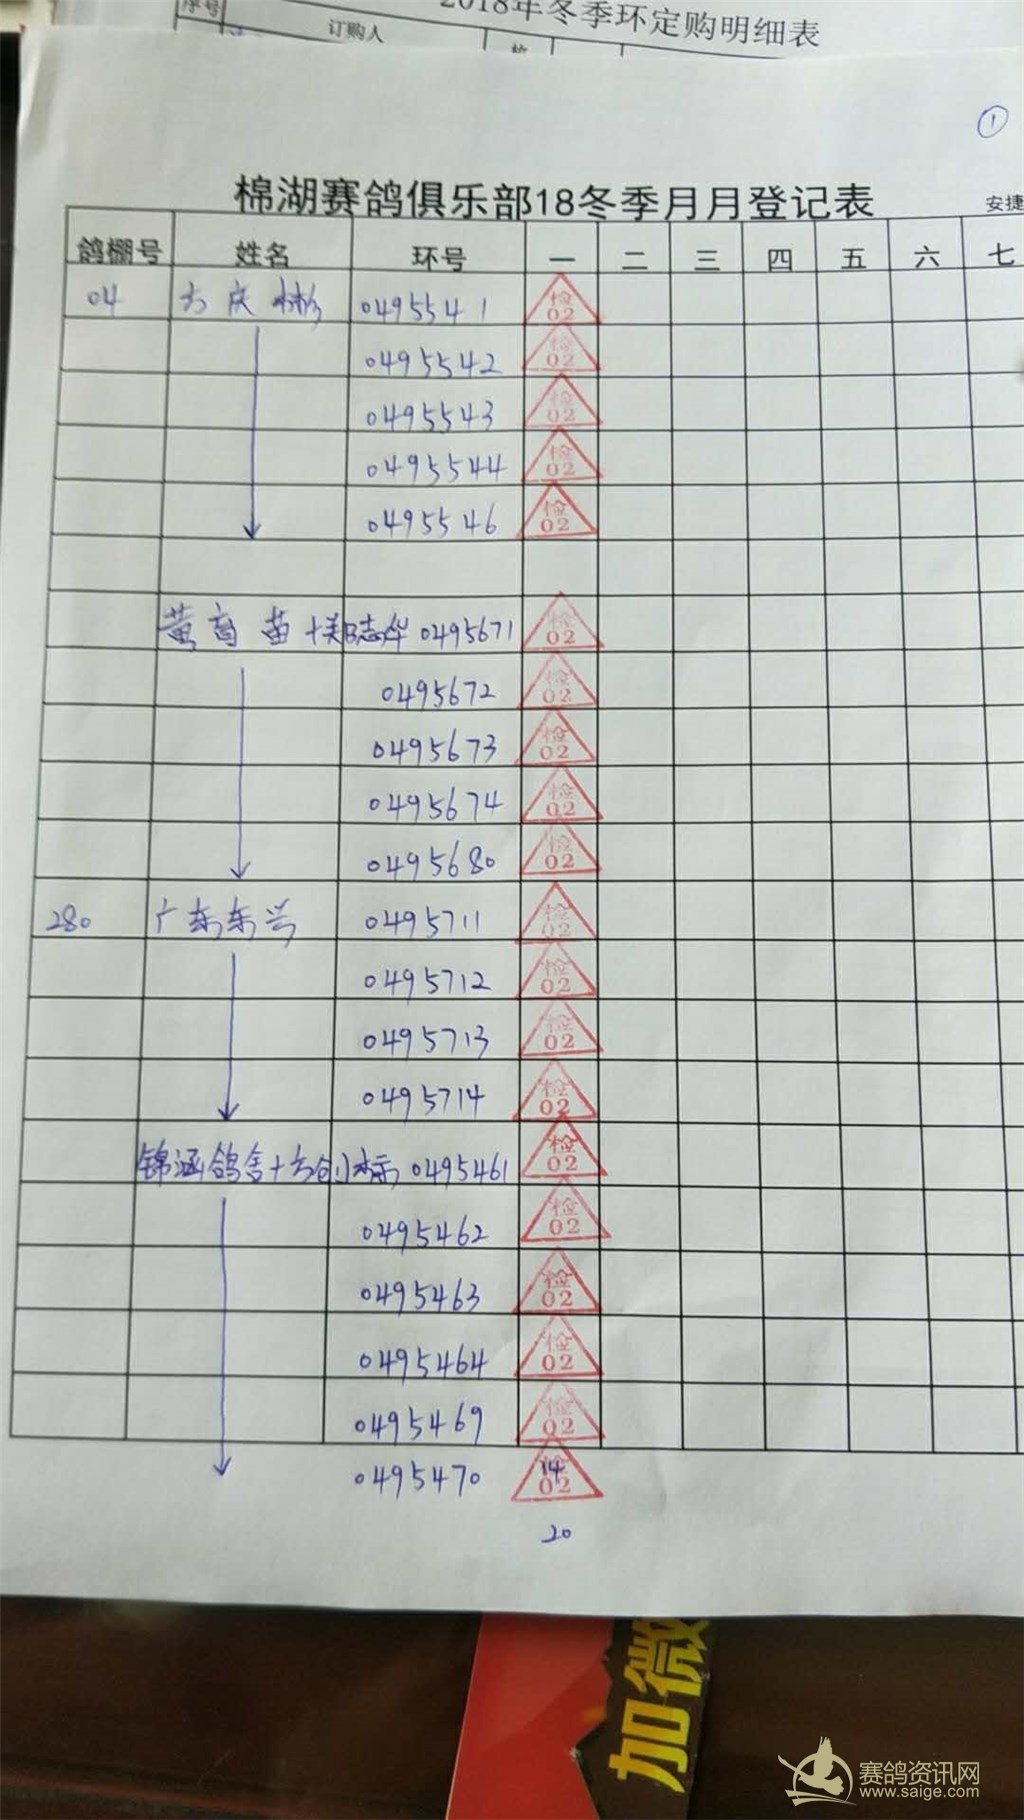 2018年冬季环定购明细表
序号 订购人
1
棉湖赛鸽俱乐部18冬季月月登记表 安捷
鸽棚号 姓名 环号 一 二 三 四 五 六 七
04 方庆彬 0495541 检 02
0495542 检 02
0495543 检 02
0495544 检 02
0495546 检 02
黄育苗+郑志华 0495671 检 02
0495672 检 02
0495673 检 02
0495674 检 02
0495680 检 02
280 广东东兴 0495711 检 02
0495712 检 02
0495713 检 02
0495714 检 02
锦涵鸽舍+方创标 0495461 检 02
0495462 检 02
0495463 检 02
0495464 检 02
0495469 检 02
0495470 检 02
20
加微
赛鸽资讯网
www.saige.com